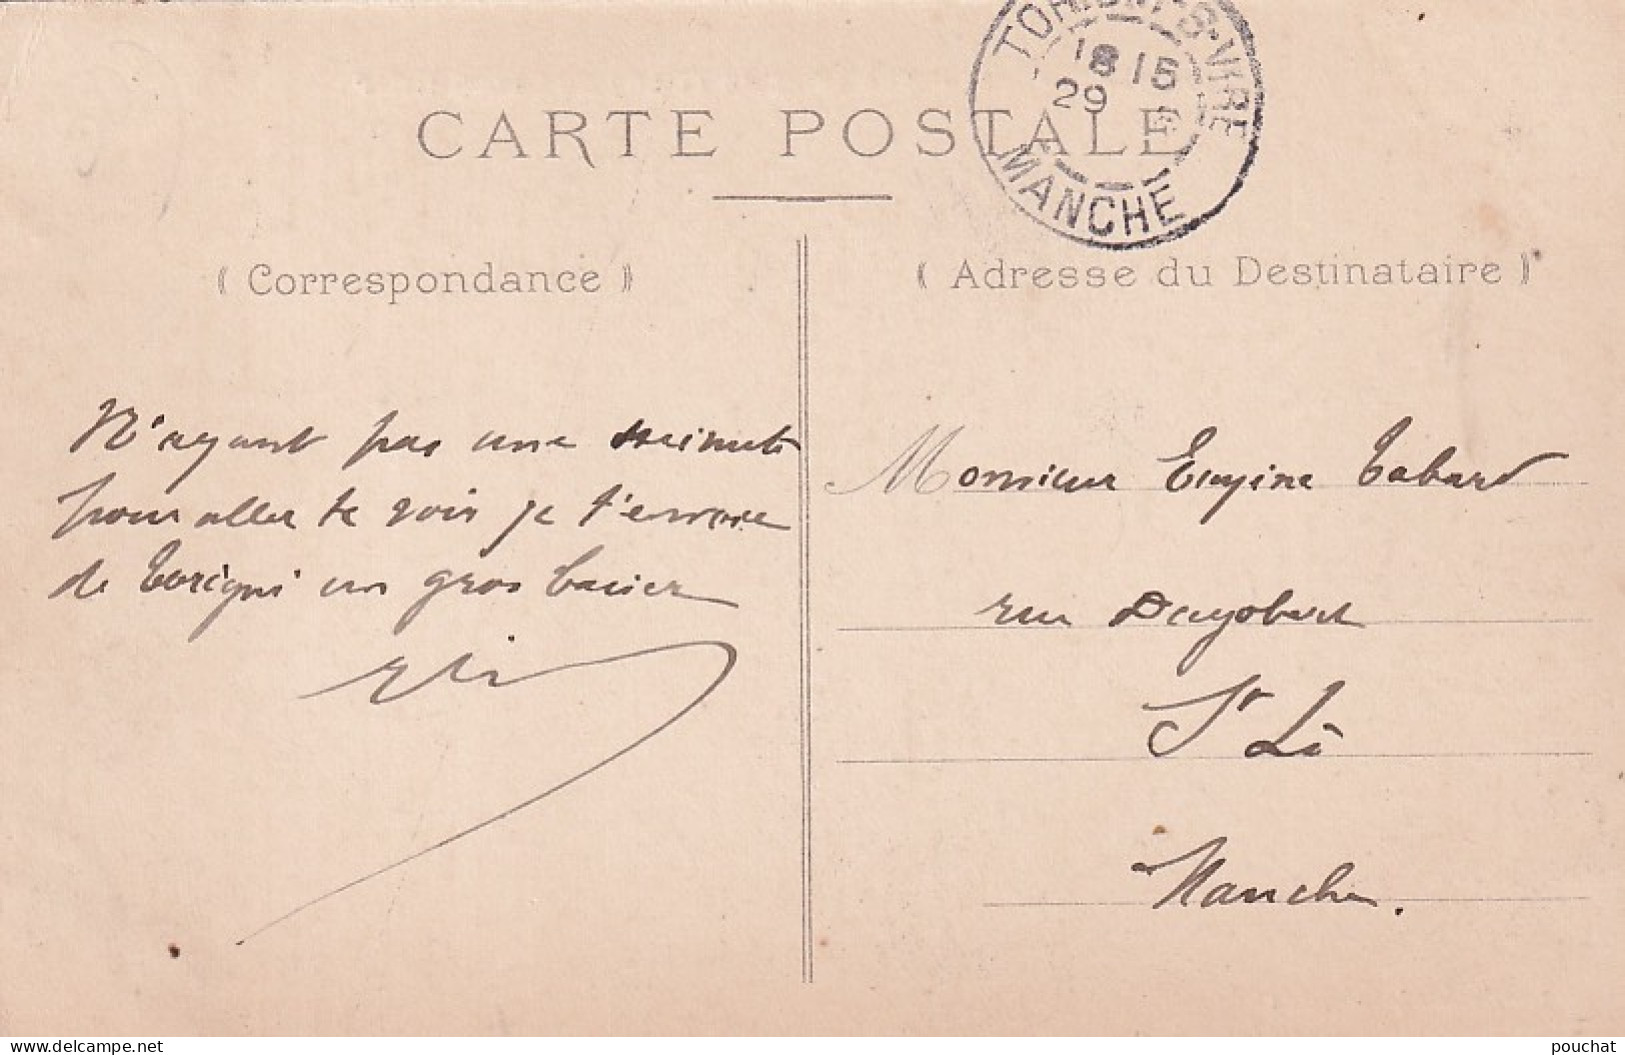 TORIGNI-S-VIRE
18 15
29
MANCHE
CARTE POSTALE
( Correspondance )
( Adresse du Destinataire )
N'ayant pas une minute
pour aller te voir je t'envoie
de Torigni un gros baiser
Monsieur Eugène Tabard
rue Dagobert
St Lô
Manche.
www.delcampe.net
pouchat